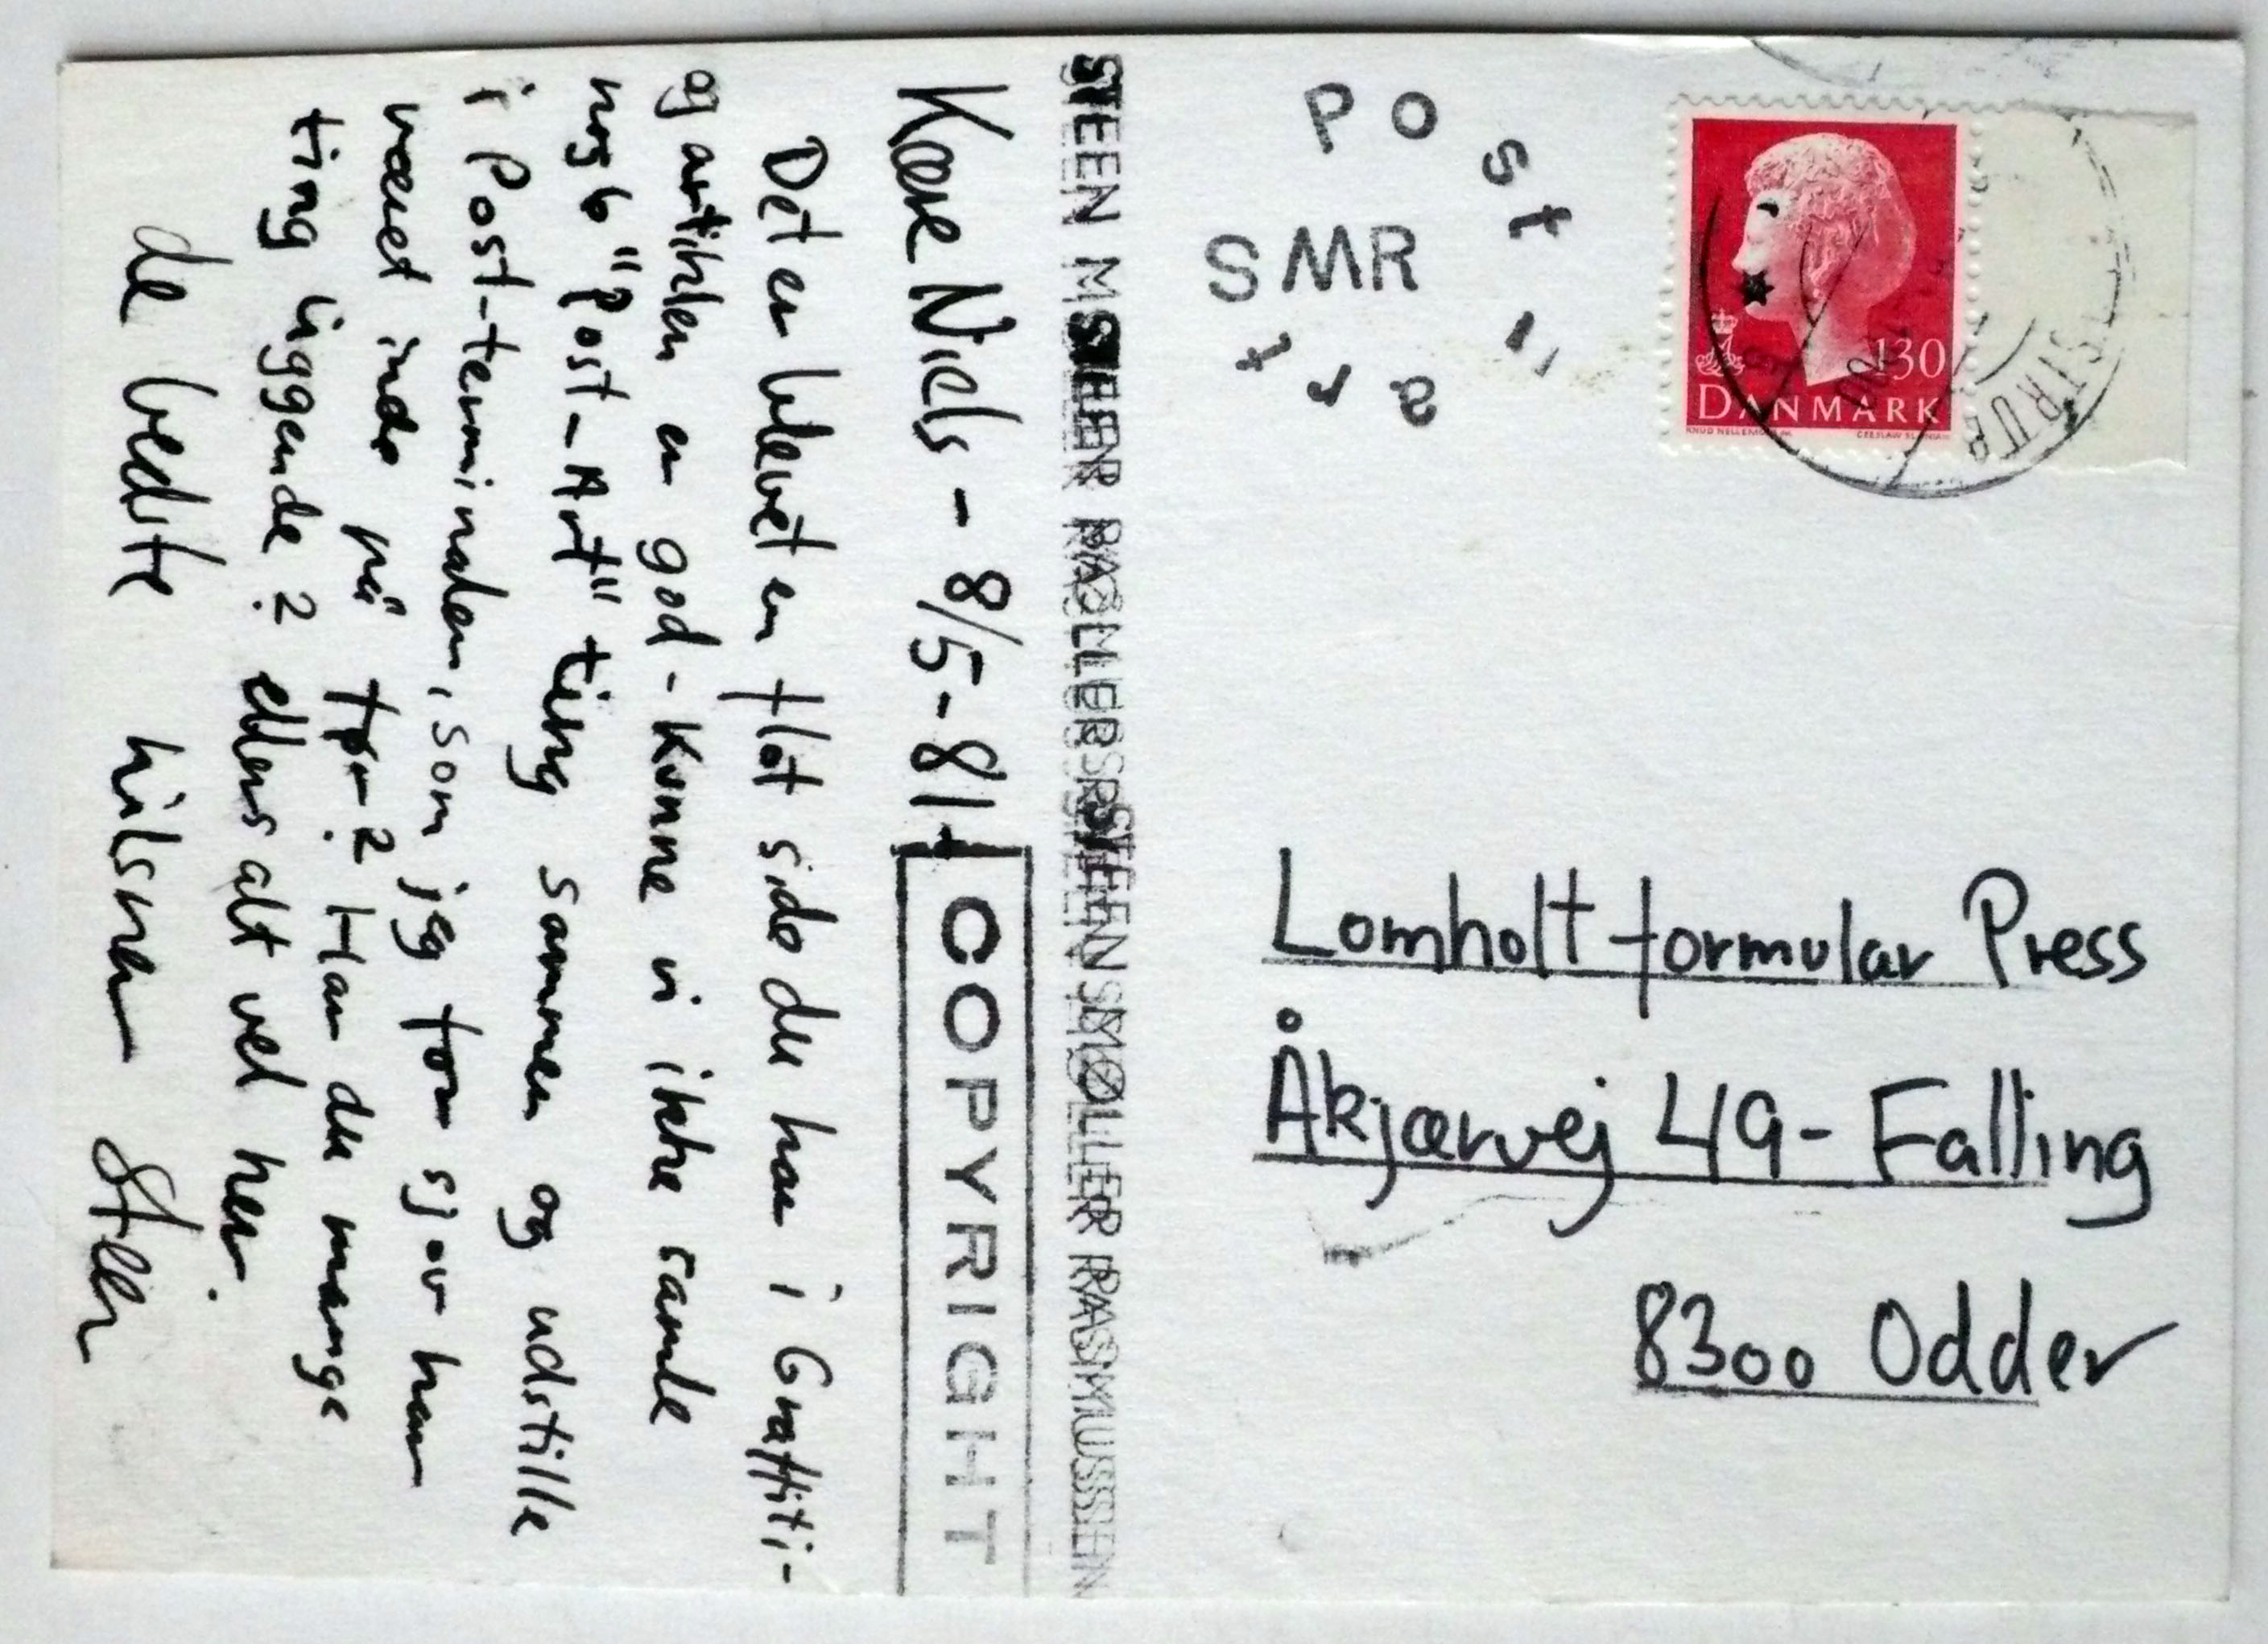 Kære Niels - 8/5-81-
COPYRIGHT
Det er blevet en flot side du har i Graffiti-
og artiklen er god - Kunne vi ikke samle
nogle "Post-Art" ting sammen og udstille
i Post-terminalen, som jeg tror sjov har
været inde på før? Har du mange
ting liggende? ellers alt vel her.
de bedste hilsner Steen
STEEN MØLLER RASMUSSEN
Post
SMR
11
art
130
DANMARK
Lomholt formular Press
Åkjærvej 49 - Falling
8300 Odder